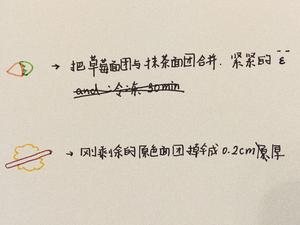 → 把草莓面团与抹茶面团合并. 紧紧的
and 冷冻 30min
→ 刚剩余的原色面团擀成0.2cm厚